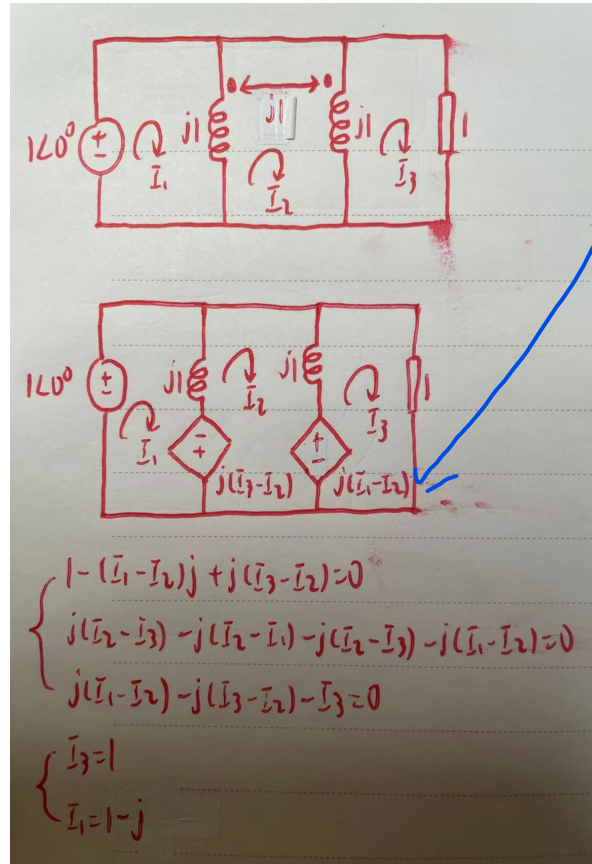 j1
1<0° + - I₁ j1 I₂ j1 I₃ 1
1<0° + - I₁ j1 I₂ j1 I₃ 1
- + j(I₃-I₂) + - j(I₁-I₂)
1-(I₁-I₂)j+j(I₃-I₂)=0
j(I₂-I₃)-j(I₂-I₁)-j(I₂-I₃)-j(I₁-I₂)=0
j(I₁-I₂)-j(I₃-I₂)-I₃=0
I₃=1
I₁=1-j